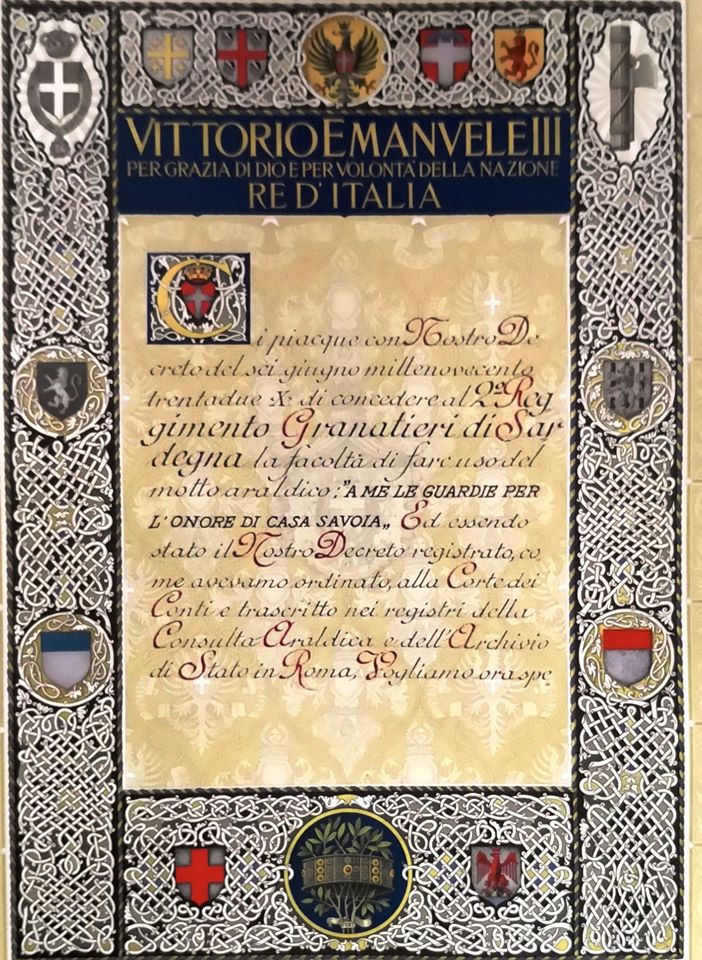 VITTORIO EMANVELE III
PER GRAZIA DI DIO E PER VOLONTA' DELLA NAZIONE
RE D'ITALIA
Ci piacque con Nostro De
creto del sei giugno millenovecento
trentadue X° di concedere al 2° Reg
gimento Granatieri di Sar
degna la facoltà di fare uso del
motto araldico: "A ME LE GUARDIE PER
L'ONORE DI CASA SAVOIA„ Ed essendo
stato il Nostro Decreto registrato, co
me avevamo ordinato, alla Corte dei
Conti e trascritto nei registri della
Consulta Araldica e dell'Archivio
di Stato in Roma, Vogliamo ora spe